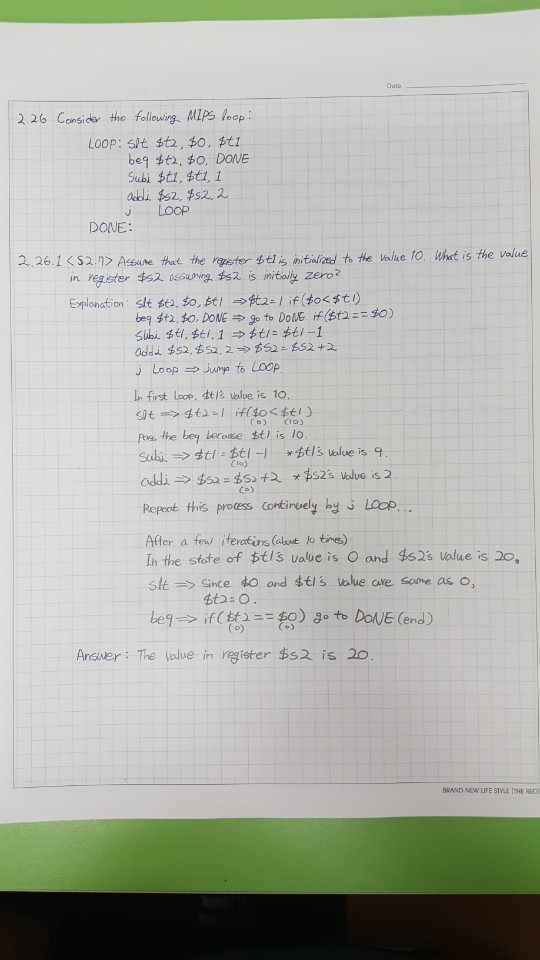 Date
2.26 Consider the following MIPS loop:
LOOP: slt $t2, $0, $t1
beq $t2, $0, DONE
subi $t1, $t1, 1
addi $s2, $s2, 2
j LOOP
DONE:
2.26.1 <S2.7> Assume that the register $t1 is initialized to the value 10. What is the value
in register $s2 assuming $s2 is initially zero?
Explanation: slt $t2, $0, $t1 ⇒ $t2=1 if ($0<$t1)
beq $t2, $0, DONE ⇒ go to DONE if ($t2==$0)
subi $t1, $t1, 1 ⇒ $t1=$t1-1
addi $s2, $s2, 2 ⇒ $s2=$s2+2
j Loop ⇒ jump to LOOP.
In first loop, $t1's value is 10.
slt ⇒ $t2=1 if($0<$t1)
(0) (10)
Pass the beq because $t1 is 10.
subi ⇒ $t1=$t1-1 *$t1's value is 9.
(10)
addi ⇒ $s2=$s2+2 *$s2's value is 2.
(0)
Repeat this process continuely by j LOOP...
After a few iterations (about 10 times)
In the state of $t1's value is 0 and $s2's value is 20,
slt ⇒ Since $0 and $t1's value are same as 0,
$t2=0.
beq ⇒ if($t2==$0) go to DONE (end)
(0) (0)
Answer: The value in register $s2 is 20.
BRAND NEW LIFE STYLE [THE RED]